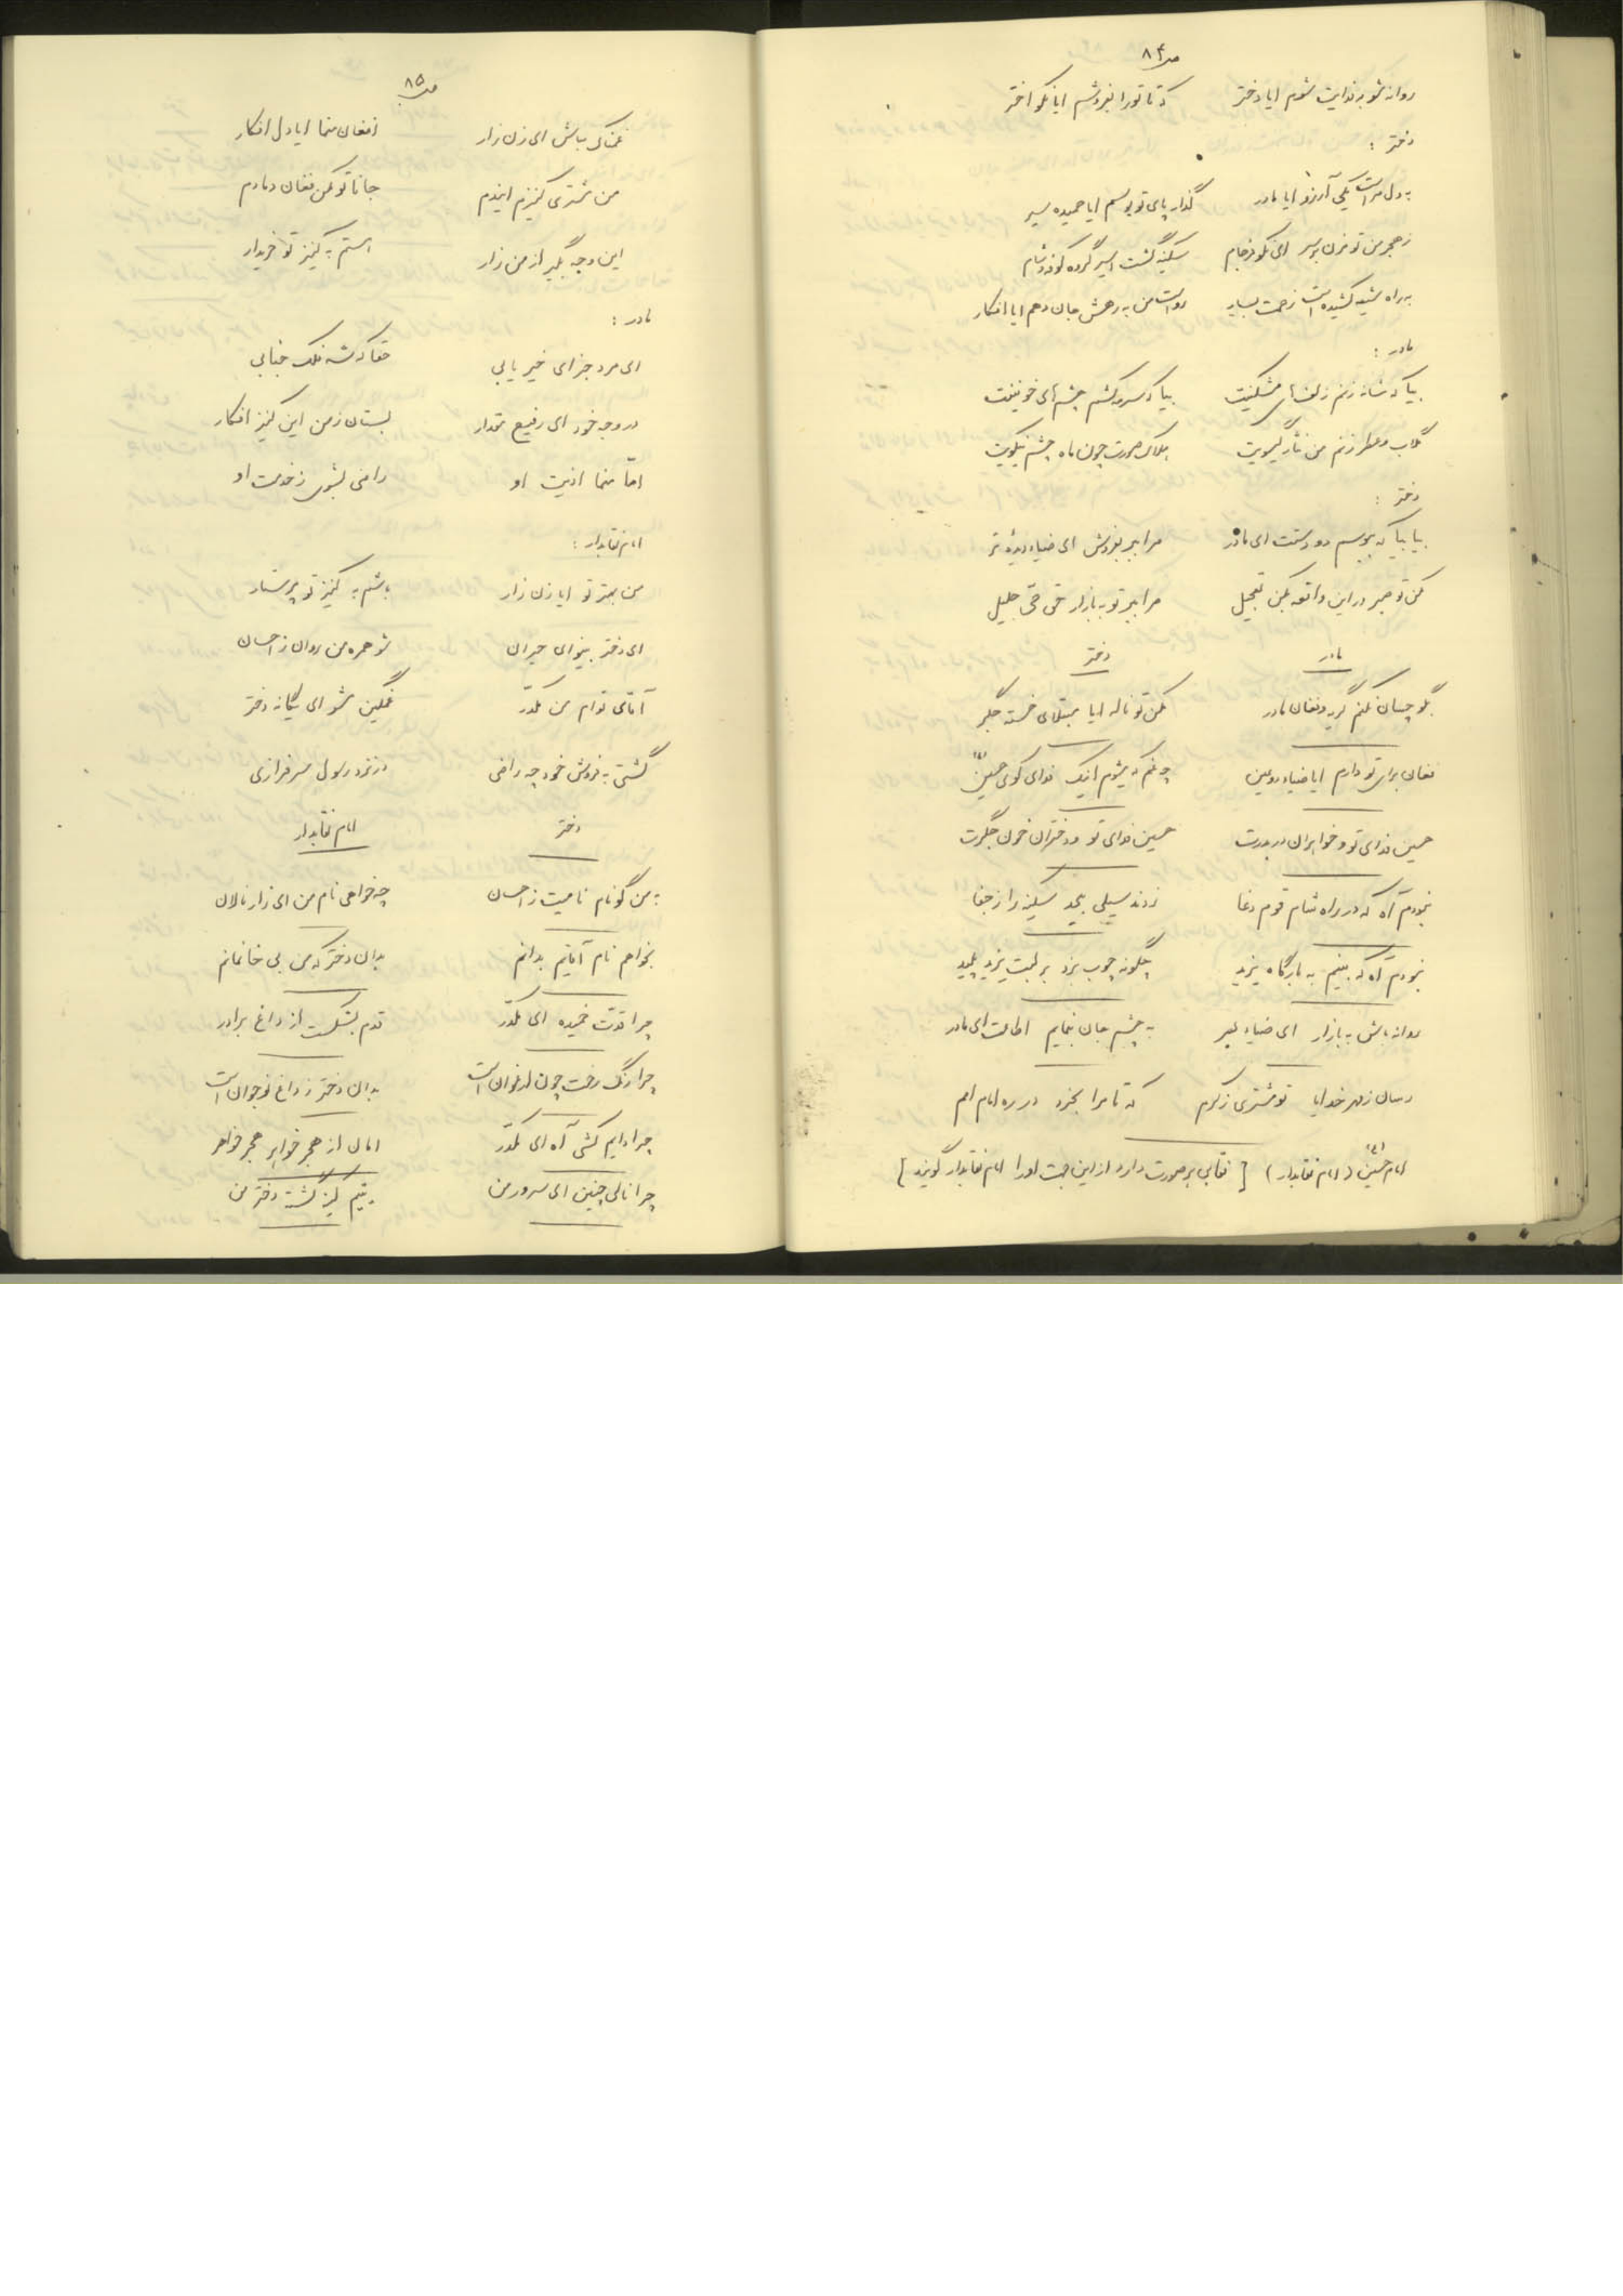 ص ۸۴
روانه شو به فدایت شوم ایا دختر که تا تو را بفروشم ایا نکو اختر
دختر :
به دل مراست یکی آرزو ایا مادر گذار پای تو بوسم ایا حمیده سیر
ز هجر من تو مزن بر سر ای نکو فرجام سکینه گشت اسیر گروه کوفه و شام
به راه شیعه کشیده است زحمت بسیار رواست من به رهش جان دهم ایا افکار
مادر :
بیا که شانه زنم زلف‌های مشکینت بیا که سرمه کشم چشم‌های خونینت
گلاب و عطر زنم من نثار گیسویت صورت چون ماه چشم نیکویت
دختر :
بیا بیا که ببوسم دو دستت ای مادر مرا ببر بفروش ای ضیاء دیده تر
مکن تو صبر در این واقعه بکن تعجیل مرا ببر تو به بازار حق حی جلیل
مادر دختر
بگو چسان نکنم گریه و فغان مادر مکن تو ناله ایا مبتلای خسته جگر
فغان برای تو دارم ایا ضیاء دو عین چه غم که میشوم اینک فدای کوی حسین (ع)
حسین فدای تو و خواهران در بدرت حسین فدای تو و دختران خون جگرت
نبودم آه که در راه شام قوم دغا زدند سیلی بیحد سکینه را ز جفا
نبودم آه که بینم به بارگاه یزید چگونه چوب بزد بر لبت یزید پلید
روانه باش به بازار ای ضیاء بصر به چشم جان بنمایم اطاعت ای مادر
رسان ز مهر خدایا تو مشتری ز کرم که تا مرا بخرد در ره امام امم
امام حسین (ع) (امام نقابدار) [ نقابی بر صورت دارد از این جهت او را امام نقابدار گویند ]
ص ۸۵
غمناک مباش ای زن زار افغان منما ایا دل افکار
من مشتری کنیزم ایندم جانا تو مکن فغان دمادم
این وجه بگیر از من زار هستم به کنیز تو خریدار
مادر :
ای مرد جزای خیر یابی حقا که شه فلک جنابی
در وجه خود ای رفیع مقدار بستان ز من این کنیز افکار
امّا منما اذیت او راضی بشوی ز خدمت او
امام نقابدار :
من بهتر تو ایا زن زار باشم به کنیز تو پرستار
ای دختر بینوای حیران شو همره من روان ز احسان
آقای توام من مکدّر غمگین مشو ای یگانه دختر
گشتی به فروش خود چه راضی در نزد رسول سرفرازی
دختر امام نقابدار
به من گو نام نامیت ز احسان چه خواهی نام من ای زار نالان
بخواهم نام آقایم بدانم بدان دختر که من بی خانمانم
چرا قدّت خمیده ای مکدّر قدم بشکست از داغ برادر
چرا رنگ رخت چون ارغوان است بدان دختر ز داغ نوجوان است
چرا دایم کشی آه ای مکدّر امان از هجر خواهر هجر خواهر
چرا نالی چنین ای سرور من یتیم گشته دختر من